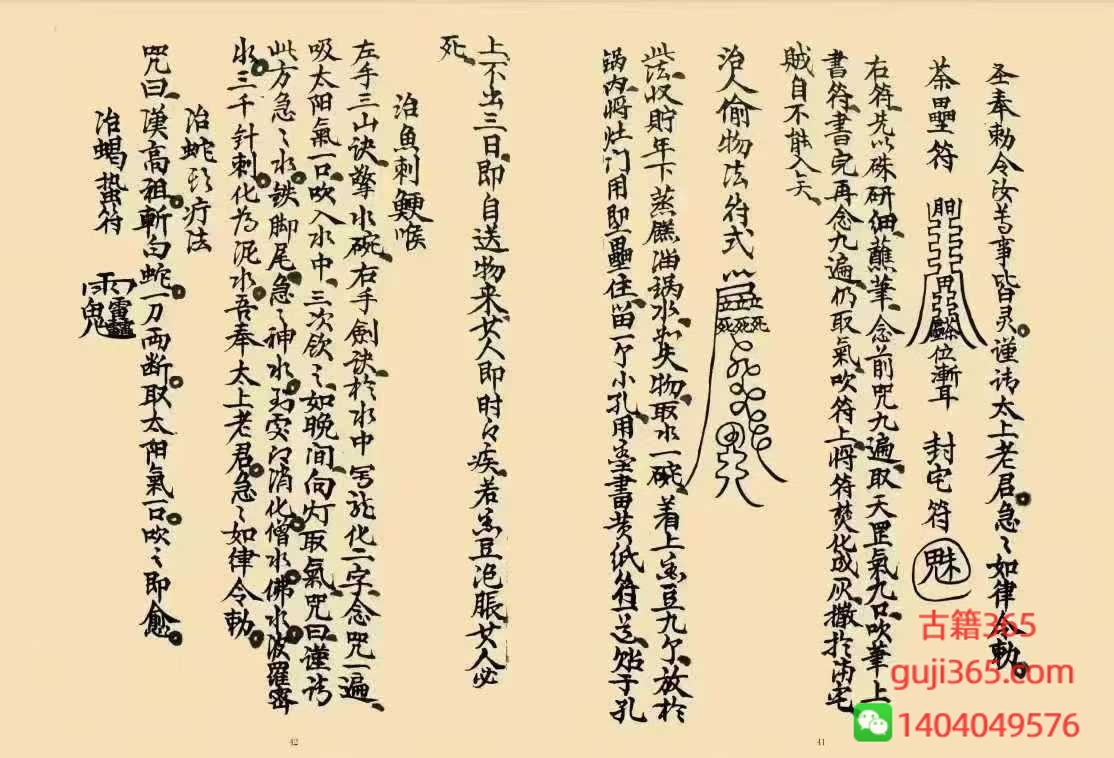 圣奉勅令汝著事皆灵谨请太上老君急〻如律令勅
荼壘符 封宅符
右符先以硃研细蘸筆念前咒九遍取天罡氣九口吹筆上
書符書完再念九遍仍取氣吹符上將符焚化成灰撒於両宅
賊自不能入矣
治人偷物法符式
此法收貯年下蒸糕油锅水如失物取水一碗着上黑豆九个放於
锅内将灶门用即壘住留一个小孔用墨畫黄纸符一道贴于孔
上不出三日即自送物来其人即时心疾若黑豆泡脹其人必
死
治魚刺鯁喉
左手三山诀擎水碗右手劍诀於水中写龍化二字念咒一遍
吸太阳氣一口吹入水中三次飲之如晚间向灯取氣咒曰谨请
此方急〻水铁脚尾急〻神水到处即消化僧水佛水波羅密
水三千针刺化为泥水吾奉太上老君急〻如律令勅
治蛇头疔法
咒曰漢高祖斬白蛇一刀両断取太阳氣一口吹之即愈
治蝎蜇符
41
42
古籍365
guji365.com
1404049576